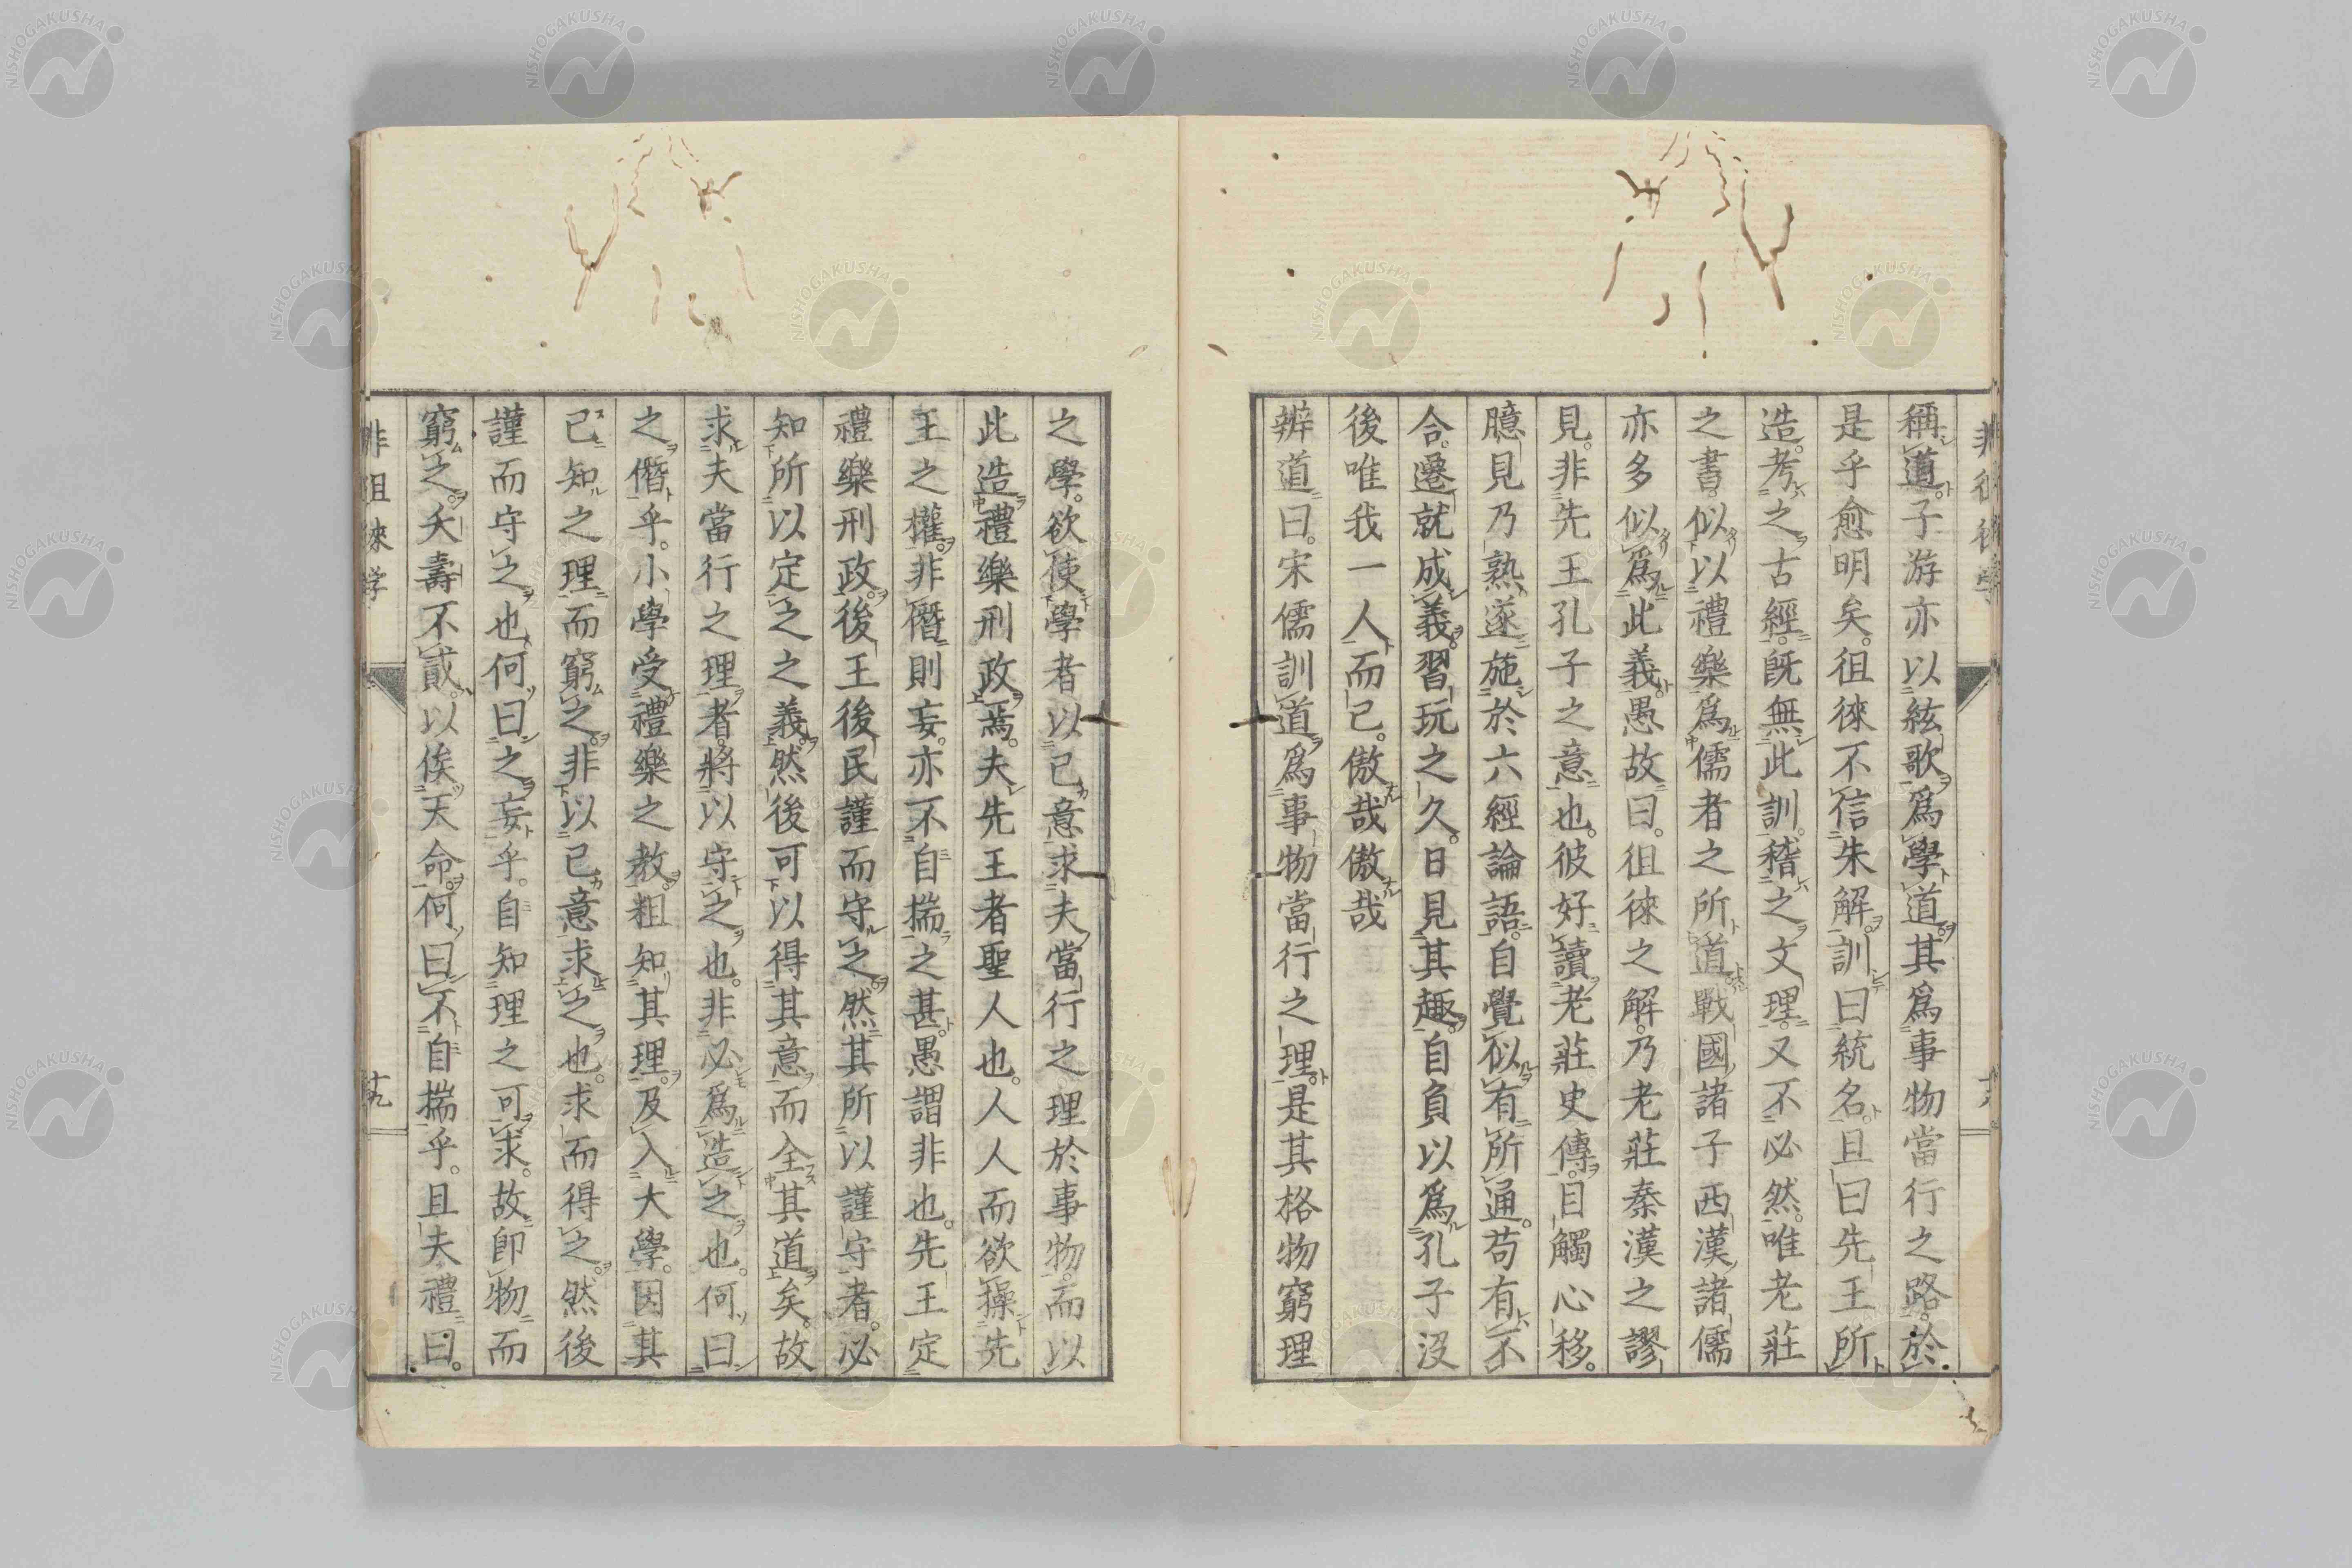 稱道子游亦以絃歌爲學道其爲事物當行之路於
是乎愈明矣。徂徠不信朱解訓曰統名且曰先王所
造。考之古經既無此訓。稽之文理又不必然。唯老莊
之書。似以禮樂爲儒者之所道戰國諸子西漢諸儒
亦多似爲此義愚故曰。徂徠之解。乃老莊秦漢之謬
見。非先王孔子之意也。彼好讀老莊史傳。目觸心移。
臆見乃熟遂施於六經論語。自覺似有所通。苟有不
合。遷就成義。習玩之久。日見其趣。自負以爲孔子沒
後唯我一人而已。傲哉傲哉
辨道曰。宋儒訓道爲事物當行之理。是其格物窮理
之學。欲使學者以己意求夫當行之理於事物。而以
此造禮樂刑政焉。夫先王者聖人也。人人而欲操先
王之權。非僭則妄。亦不自揣之甚。愚謂非也。先王定
禮樂刑政。後王後民謹而守之。然其所以謹守者。必
知所以定之之義。然後可以得其意而全其道矣。故
求夫當行之理者。將以守之也。非必爲造之也。何曰
之僭乎。小學受禮樂之教。粗知其理。及入大學。因其
已知之理而窮之。非以己意求之也。求而得之。然後
謹而守之也。何曰之妄乎。自知理之可求。故卽物而
窮之。夭壽不貳。以俟天命。何曰不自揣乎。且夫禮曰。
非徂徠学
十九
NISHOGAKUSHA